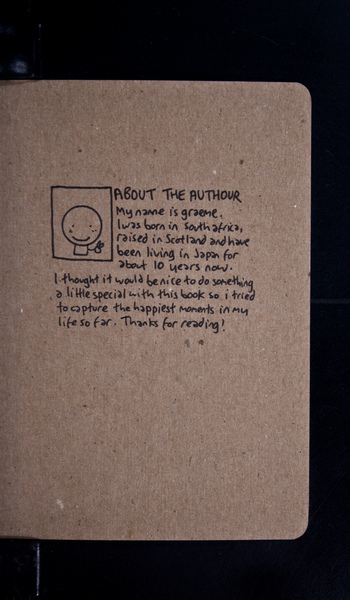 ABOUT THE AUTHOUR
My name is graeme.
I was born in South africa,
raised in Scotland and have
been living in Japan for
about 10 years now.
I thought it would be nice to do something
a little special with this book so i tried
to capture the happiest moments in my
life so far. Thanks for reading!